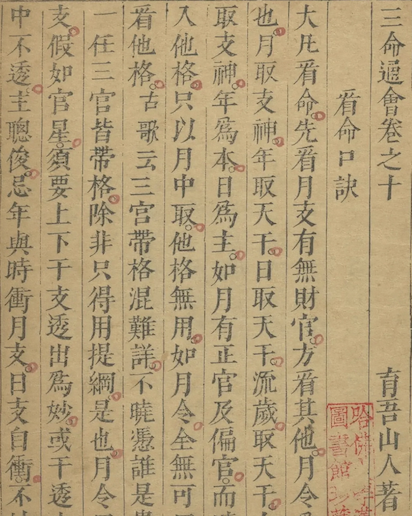 三命通會卷之十
育吾山人著
看命口訣
大凡看命先看月支有無財官方看其他月令
也月取支神年取天干日取天干流歲取天干
取支神年爲本日爲主如月有正官及偏官而
入他格只以月中取他格無用如月令全無可
看他格古歌云三宮帶格混難詳不曉憑誰是
一任三官皆帶格除非只得用提綱是也月令
支假如官星須要上下干支透出爲妙或干透
中不透主聰俊忌年與時衝月支日支自衝不
哈佛
圖書館